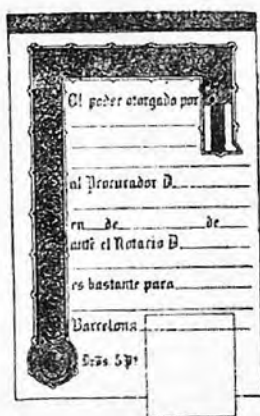 El poder otorgado por
al Procurador D.
en de de
ante el Notario D.
es bastante para
Barcelona
5 Pts